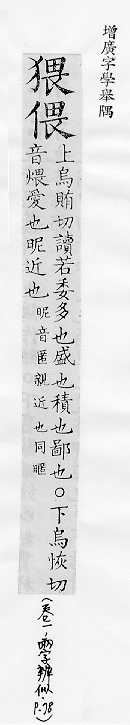 增廣字學舉隅
猥偎
上烏賄切讀若委多也盛也積也鄙也○下烏恢切
音煨愛也昵近也昵音匿親近也同暱
(卷一·兩字辨似·P.78)